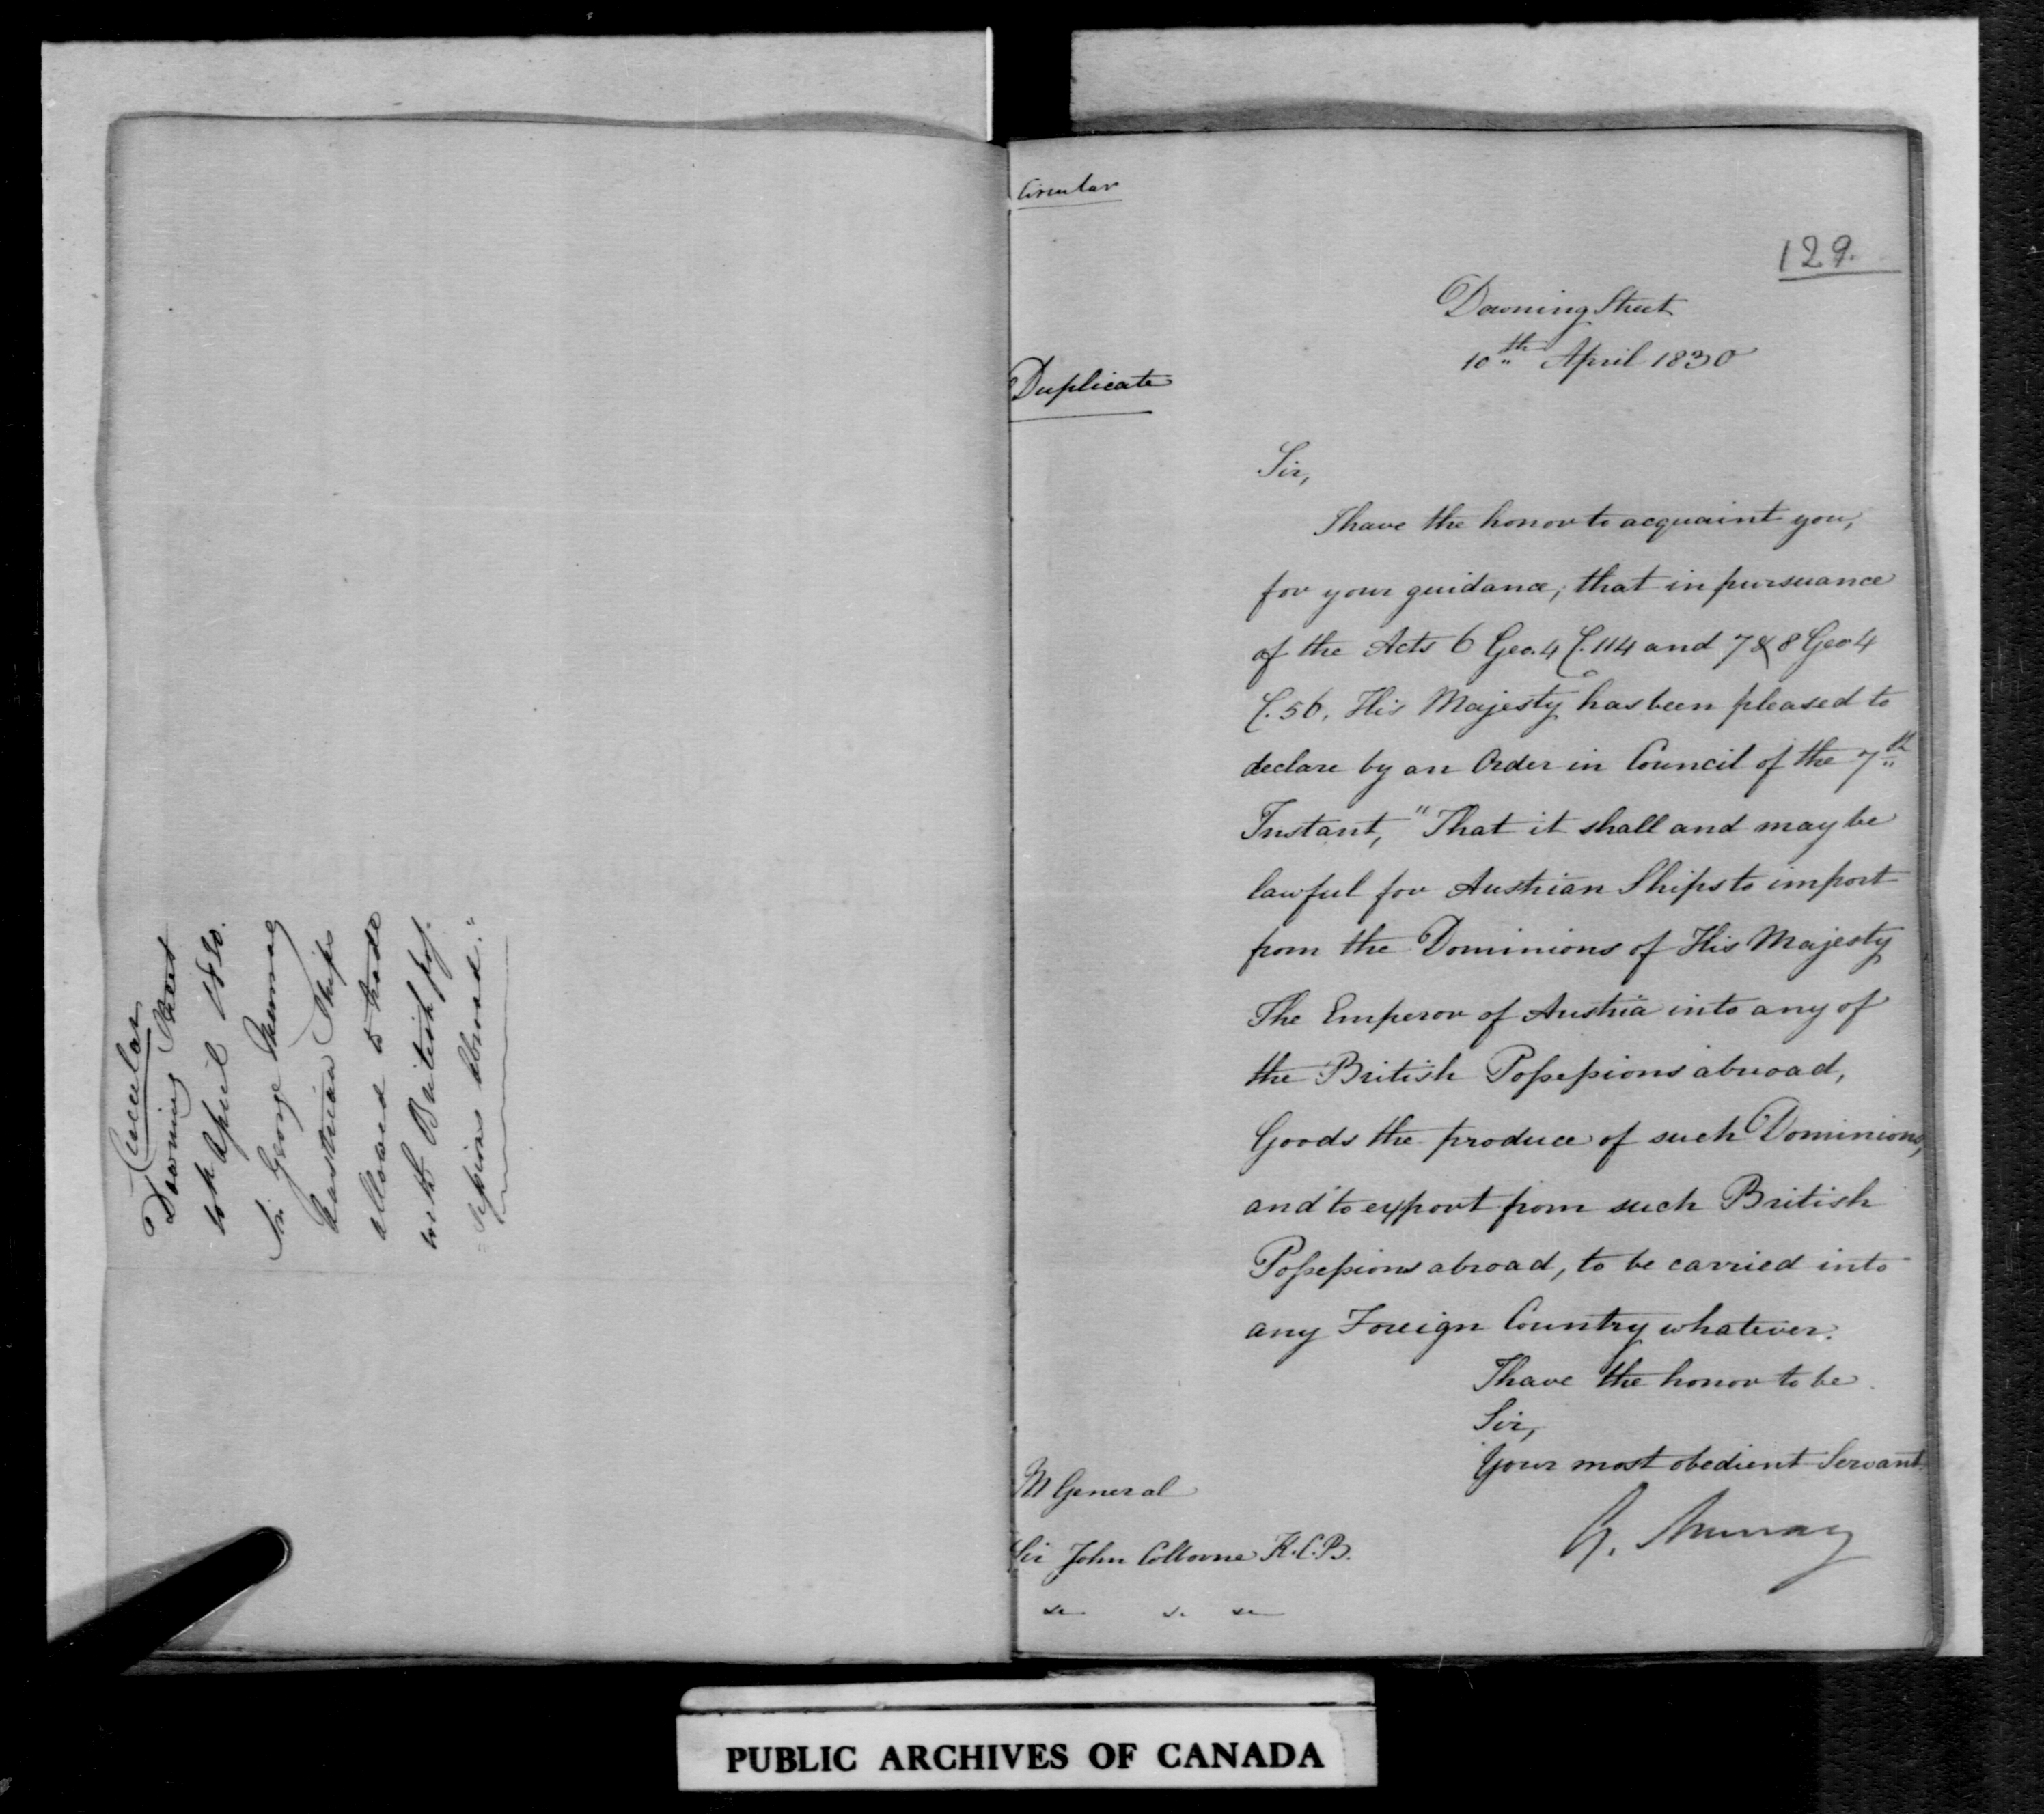 Circular
Downing Street
10th April 1830.
Sir George Murray
Austrian Ships
allowed to trade
with British pos-
=sessions abroad."
Circular
129.
Downing Street
10th April 1830
Duplicate
Sir,
I have the honor to acquaint you,
for your guidance, that in pursuance
of the Acts 6 Geo. 4 C. 114 and 7 & 8 Geo 4
C. 56, His Majesty has been pleased to
declare by an Order in Council of the 7th
Instant, "That it shall and may be
lawful for Austrian Ships to import
from the Dominions of His Majesty
The Emperor of Austria into any of
the British Possessions abroad,
Goods the produce of such Dominions,
and to export from such British
Possessions abroad, to be carried into
any Foreign Country whatever.
I have the honor to be
Sir,
Your most obedient Servant
G. Murray
M General
Sir John Colborne K.C.B.
&c &c &c
PUBLIC ARCHIVES OF CANADA